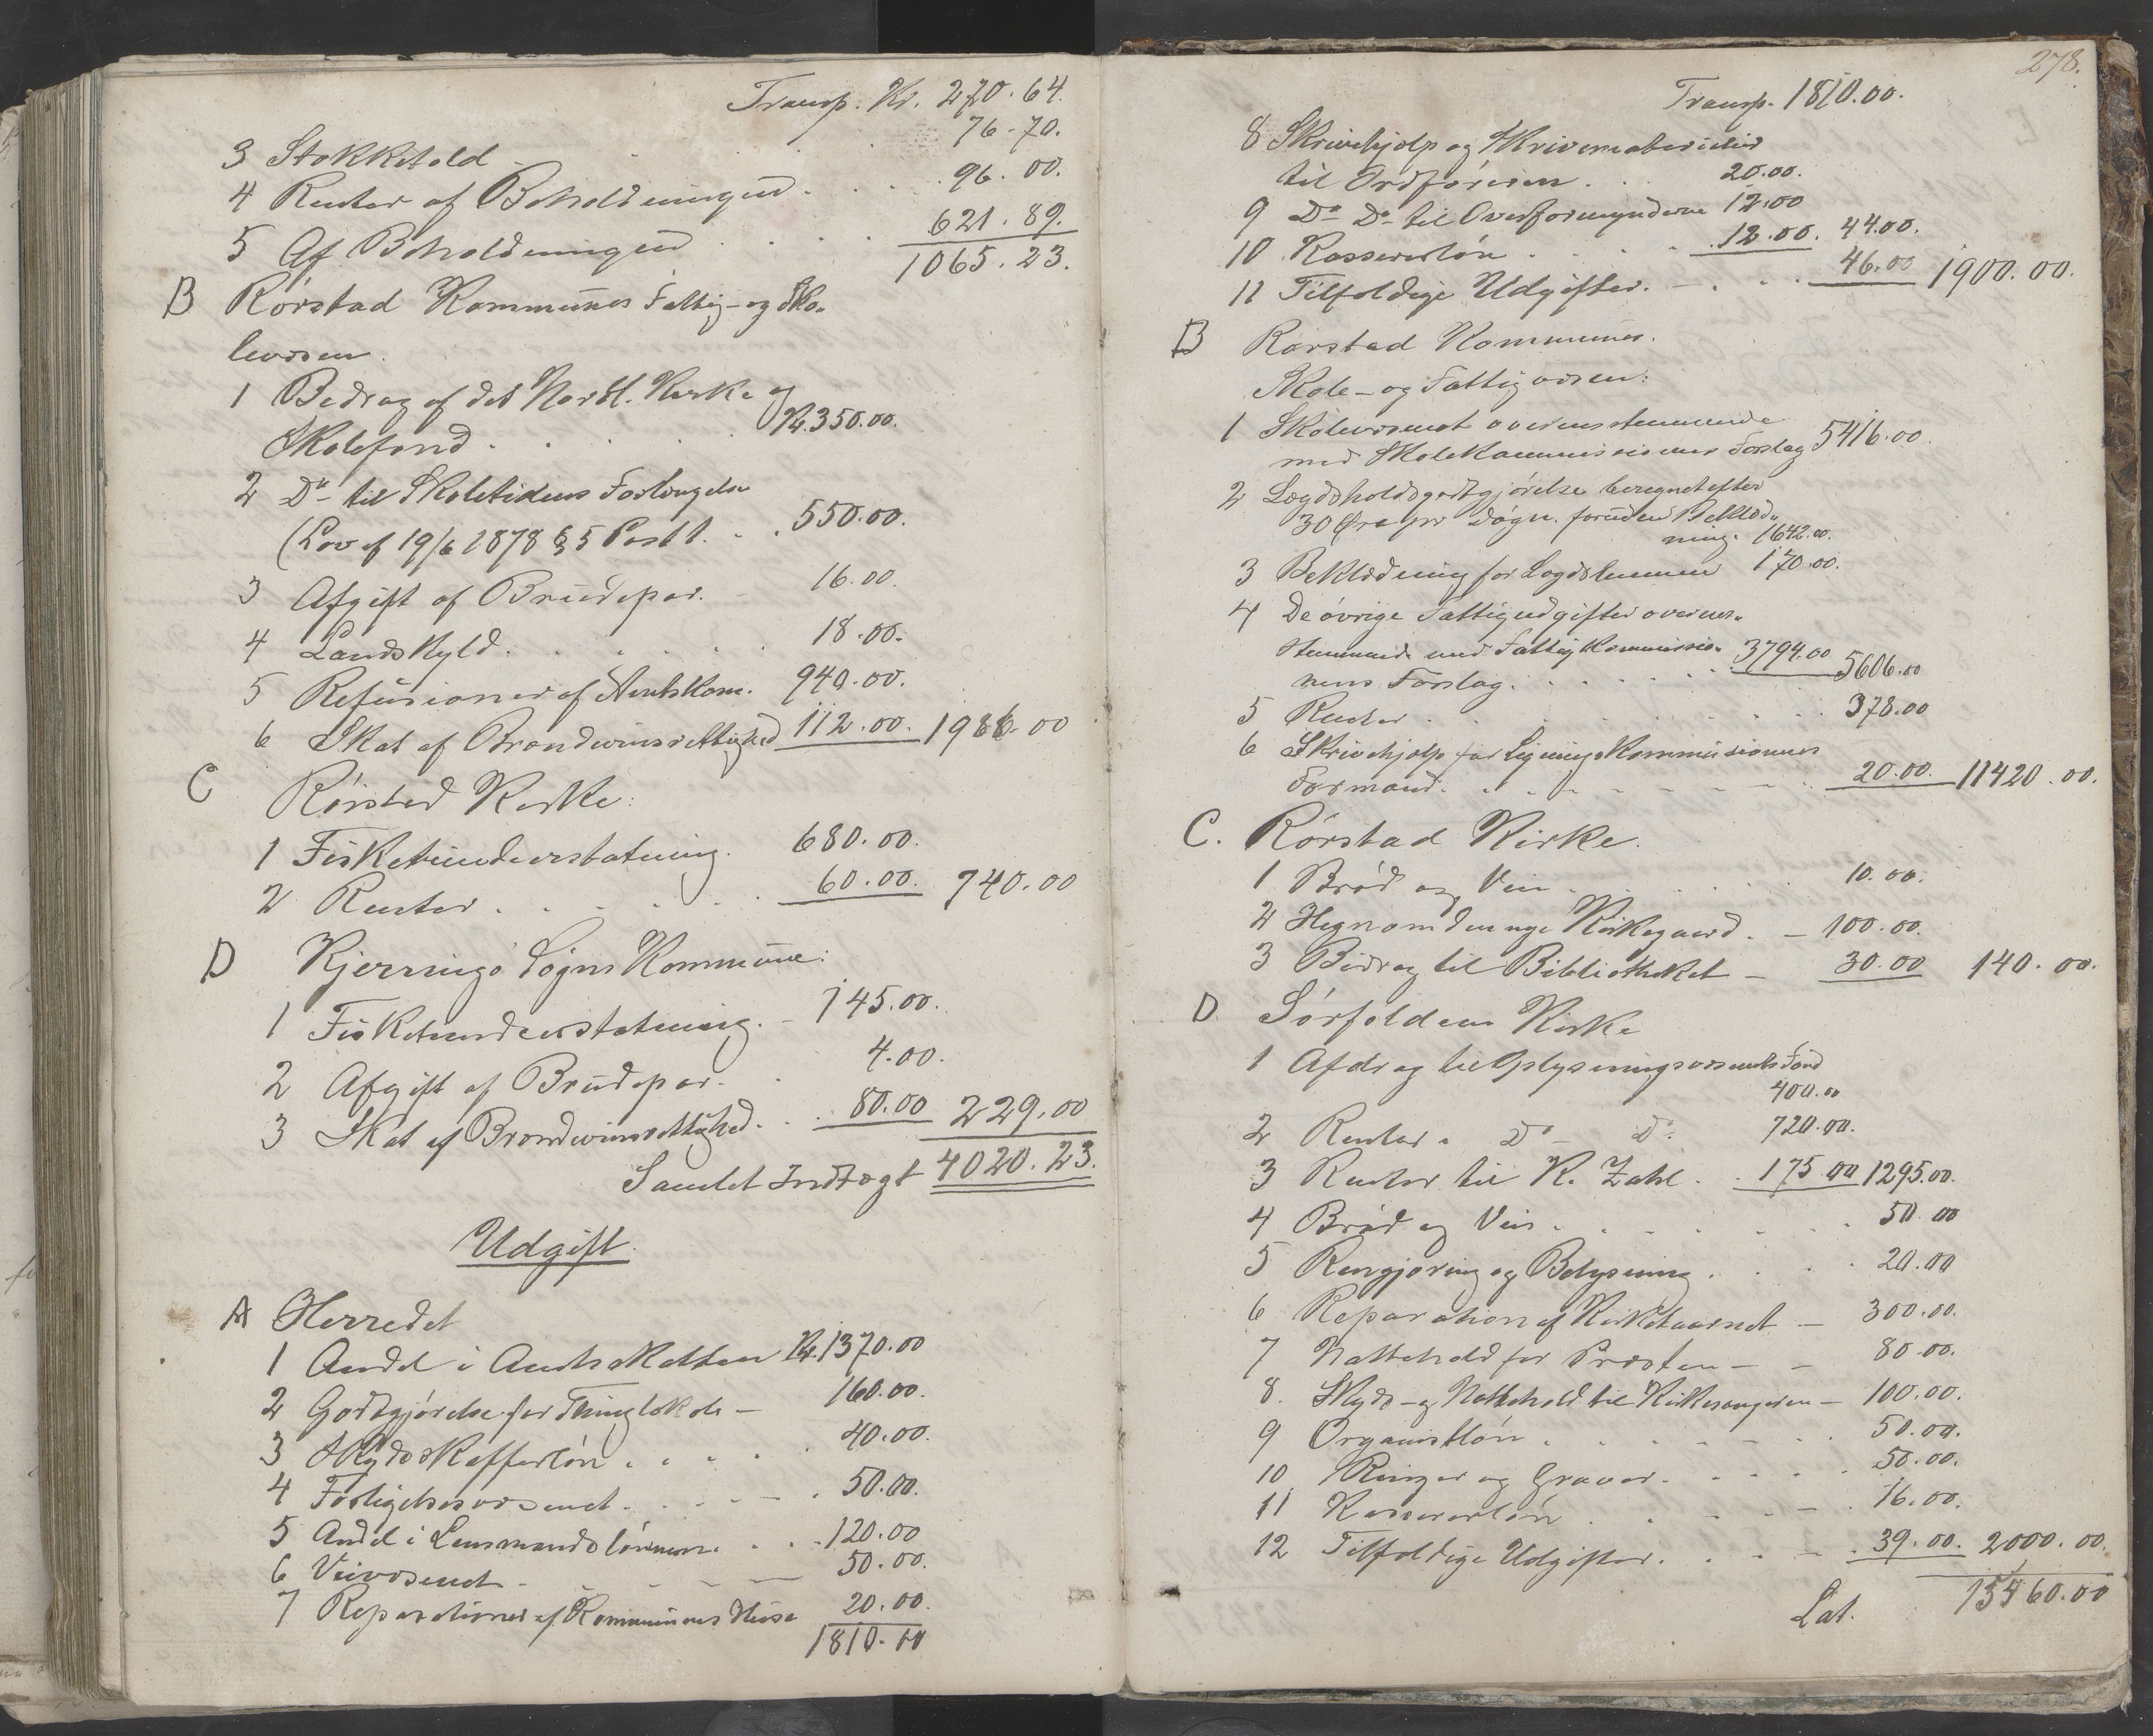 Transp. Kr. 270.64.
3 Stokketold . . . 76.70.
4 Renter af Beholdningen . . . 96.00.
5 Af Beholdningen . . . . 621.89.
1065.23.
B Rørstad Kommunes Fattig- og Sko-
levæsen.
1 Bedrag af det Nordl. Kirke og
Skolefond . . . . Kr. 350.00.
2 Do til Skoletidens Forlængelse
(Lov af 19/6 1878 § 5 Post 1. . . 550.00.
3 Afgift af Brudepar. 16.00.
4 Landskyld . . . . . . 18.00.
5 Refusioner af Amtskom. 940.00.
6 Skat af Brændevinsrettighed 112.00. 1986.00
C Rørstad Kirke:
1 Fisketiendeerstatning. 680.00.
2 Renter . . . . . . 60.00. 740.00
D Kjerringø Sogns Kommune:
1 Fisketiendeerstatning. - 145.00.
2 Afgift af Brudepar. . 4.00.
3 Skat af Brændevinsrettighed. . . 80.00 229.00
Samlet Indtægt 4020.23.
Udgift.
A Herredet
1 Andel i Amtsskatten Kr. 1370.00
2 Godtgjørelse for Thinglokale - 160.00.
3 Skydsskafferløn . . . . 40.00.
4 Forligelsesvæsenet . . . - . 50.00.
5 Andel i Lensmandslønnen. . . . 120.00
6 Veivæsenet - - - - 50.00.
7 Reparationer af Kommunens Huse 20.00.
1810.00
278.
Transp. 1810.00.
8 Skrivehjælp og Skrivematerialier
til Ordføreren . . 20.00.
9 Do Do til Overformynderne 12.00
10 Kassererløn . . . . 12.00. 44.00.
11 Tilfældige Udgifter. - . . . 46.00 1900.00.
B Rørstad Kommunes.
Skole- og Fattigvæsen:
1 Skolevæsenet overensstemmende
med Skolekommissionens Forslag 5416.00.
2 Lægdsholdsgodtgjørelse beregnet efter
30 Øre pr Døgn. foruden Beklæd-
ning. 1642.00.
3 Beklædning for Lægdslemmer 170.00.
4 De øvrige Fattigudgifter overens-
stemmende med Fattigkommissio- 3794.00
nens Forslag . . . . . . 5606.00
5 Renter . . . . . . . . 378.00
6 Skrivehjælp for Ligningskommissionens
Formand . . - - - - - . 20.00. 11420.00.
C. Rørstad Kirke.
1 Brød og Vin . . . . . . 10.00.
2 Hegn om den nye Kirkegaard . - 100.00.
3 Bidrag til Bibliotheket - 30.00 140.00.
D Sørfoldens Kirke
1 Afdrag til Oplysningsvæsenets Fond
400.00
2 Renter " Do - Do. 720.00.
3 Renter til K. Zahl . . 175.00 1295.00.
4 Brød og Vin . . . . . . 50.00
5 Rengjøring og Belysning . . . . 20.00
6 Reparation af Kirketaarnet - 300.00.
7 Nattehold for Præsten - - 80.00.
8. Skyds- og Nattehold til Kirkesangeren - 100.00.
9 Organistløn . . . . - - . 50.00.
10 Ringer og Graver. . - . . . 50.00.
11 Kassererløn . . . - - - . 16.00.
12 Tilfældige Udgifter. . . - - . 39.00. 2000.00.
Lat. 15460.00